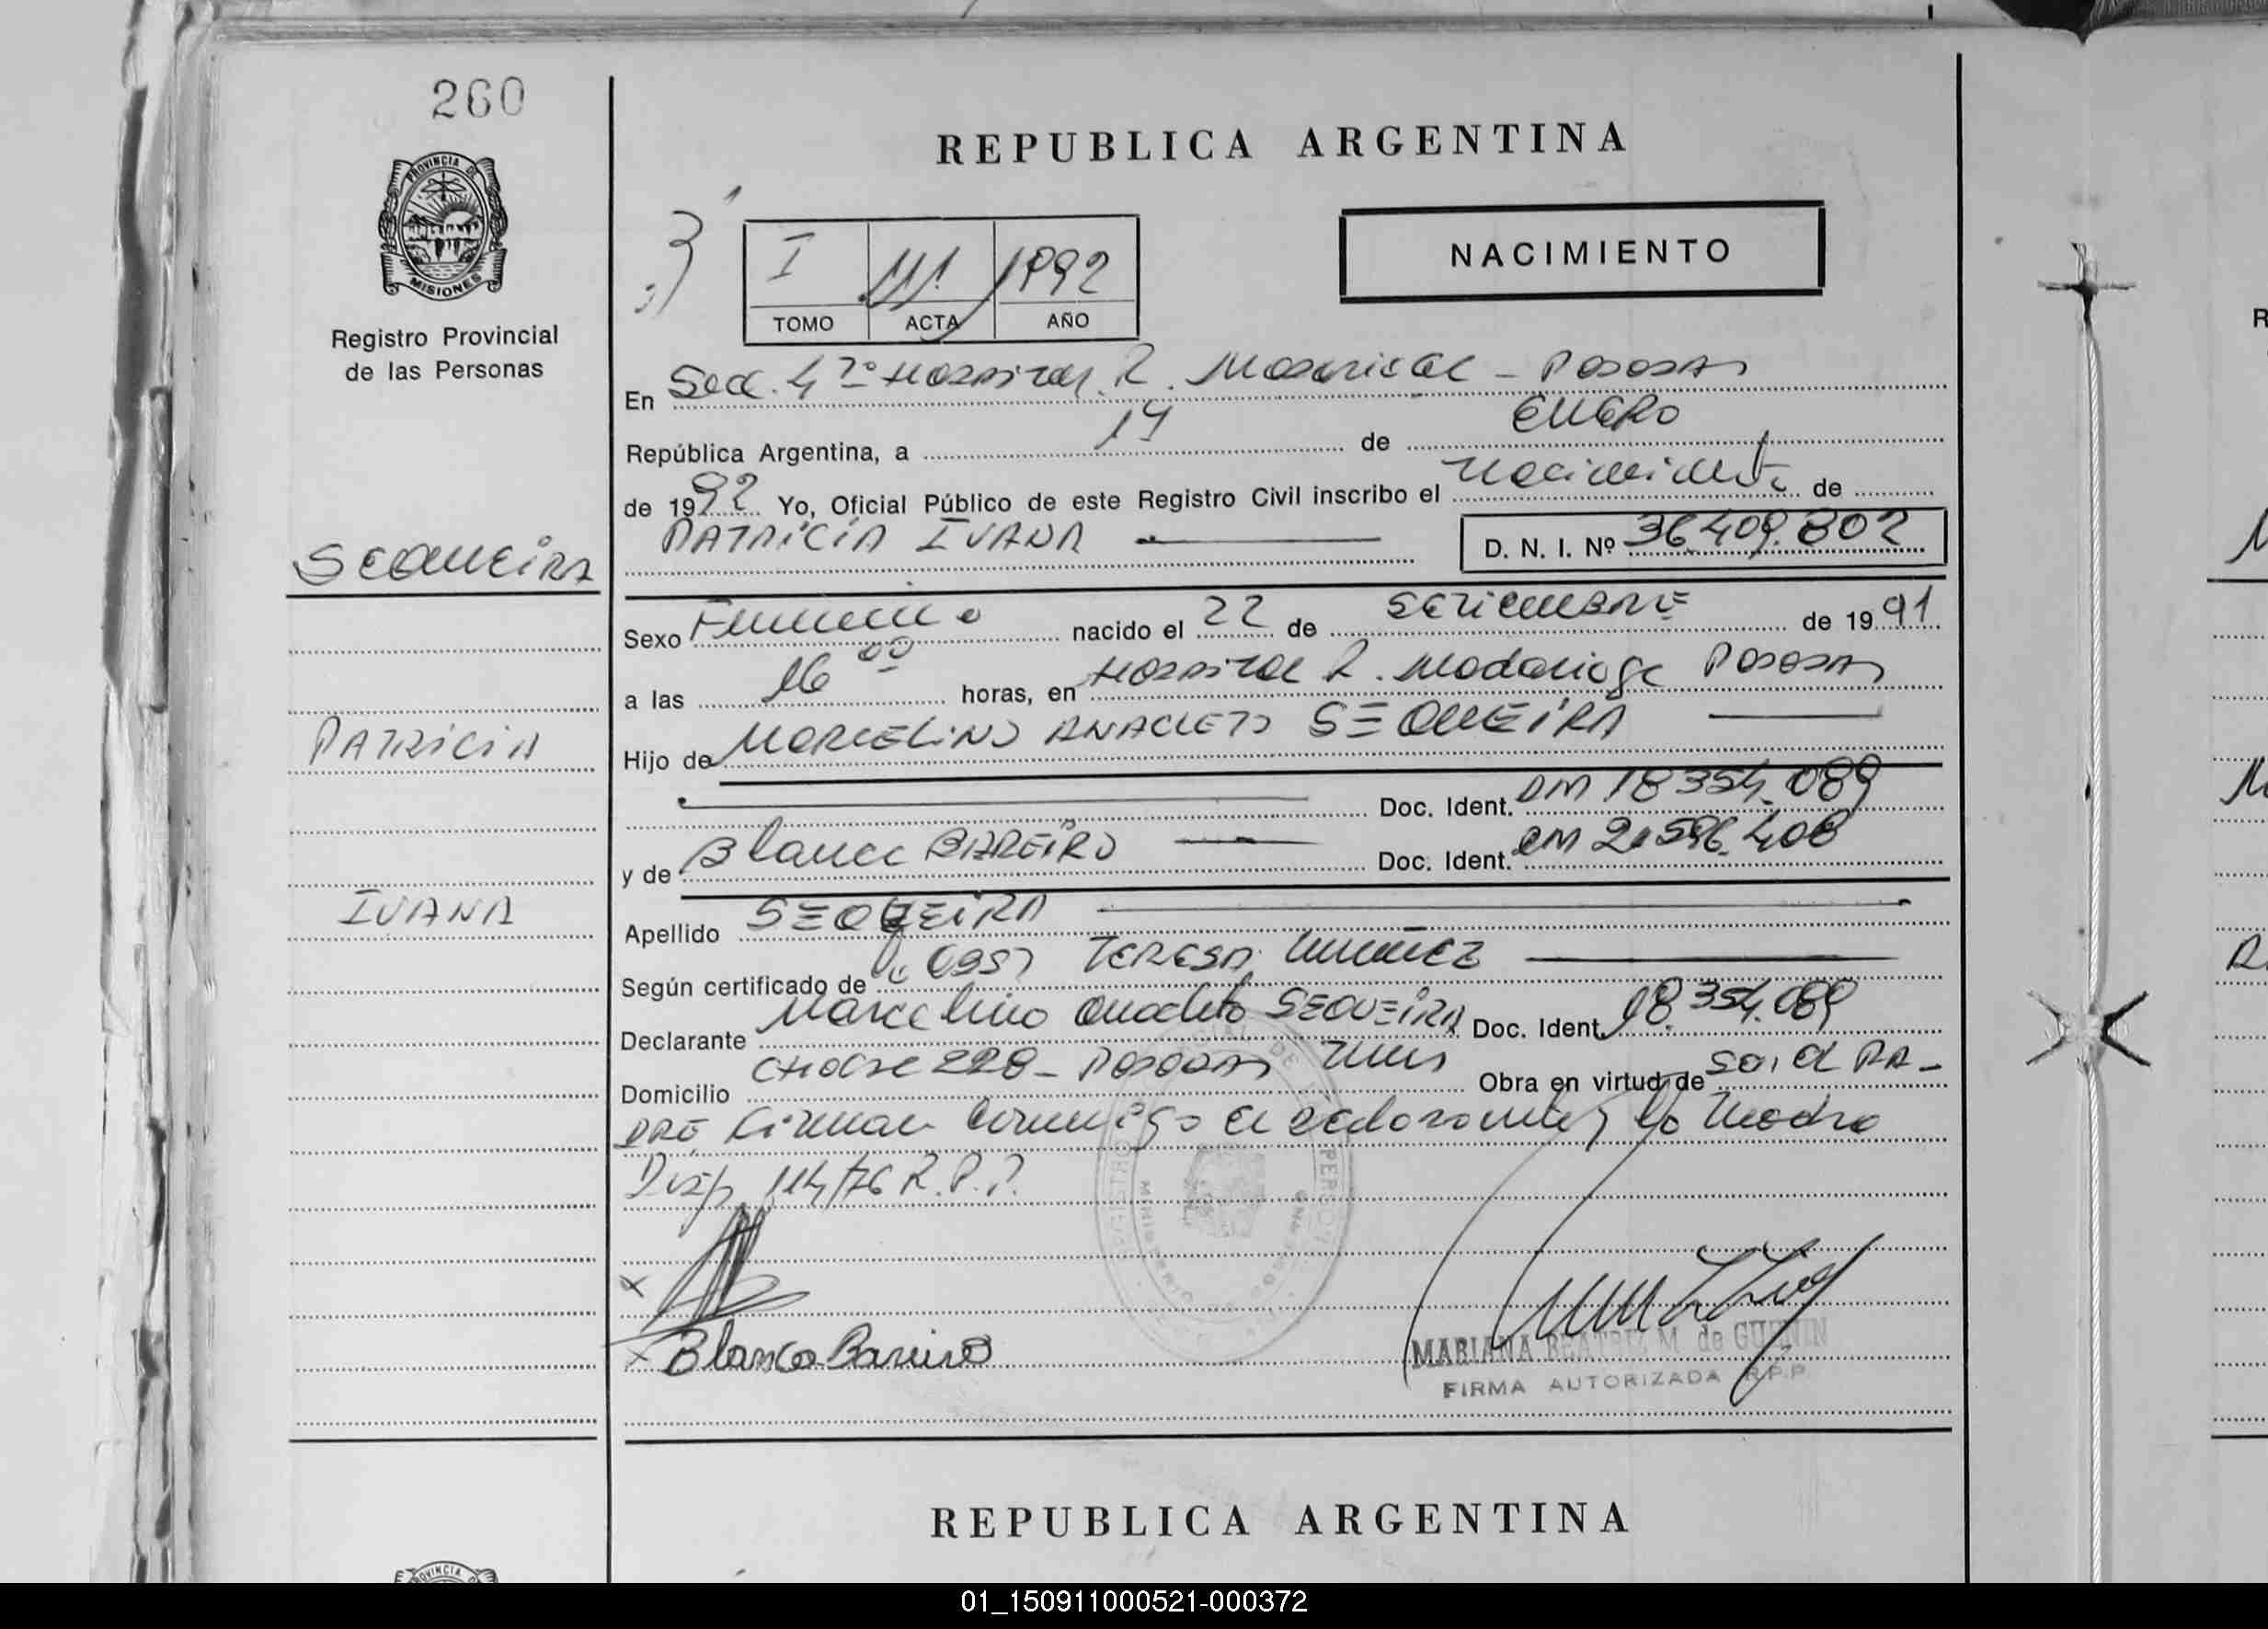 260
PROVINCIA DE
MISIONES
Registro Provincial
de las Personas
SEQUEIRA
PATRICIA
IVANA
REPUBLICA ARGENTINA
I 111 1992
TOMO ACTA AÑO
NACIMIENTO
En Secc. 4ª Hospital R. Madariaga - Posadas
República Argentina, a 14 de ENERO
de 1992 Yo, Oficial Público de este Registro Civil inscribo el nacimiento de
PATRICIA IVANA
D. N. I. Nº 36.409.802
Sexo Femenino nacido el 22 de SETIEMBRE de 1991
a las 16 00 horas, en Hospital R. Madariaga Posadas
Hijo de MARCELINO ANACLETO SEQUEIRA
Doc. Ident. DM 18.354.089
y de Blanca BAREIRO Doc. Ident. CM 20.596.408
Apellido SEQUEIRA
Según certificado de TERESA
Declarante Marcelino Anacleto SEQUEIRA Doc. Ident. 18.354.089
Domicilio 228 - Posadas Obra en virtud de Ser el PA-
DRE Firman conmigo el declarante y la madre
Disp. 114/76 R.P.P.
Blanca Bareiro
MARIANA BEATRIZ M. de
FIRMA AUTORIZADA R.P.P.
REPUBLICA ARGENTINA
PROVINCIA DE
01_150911000521-000372